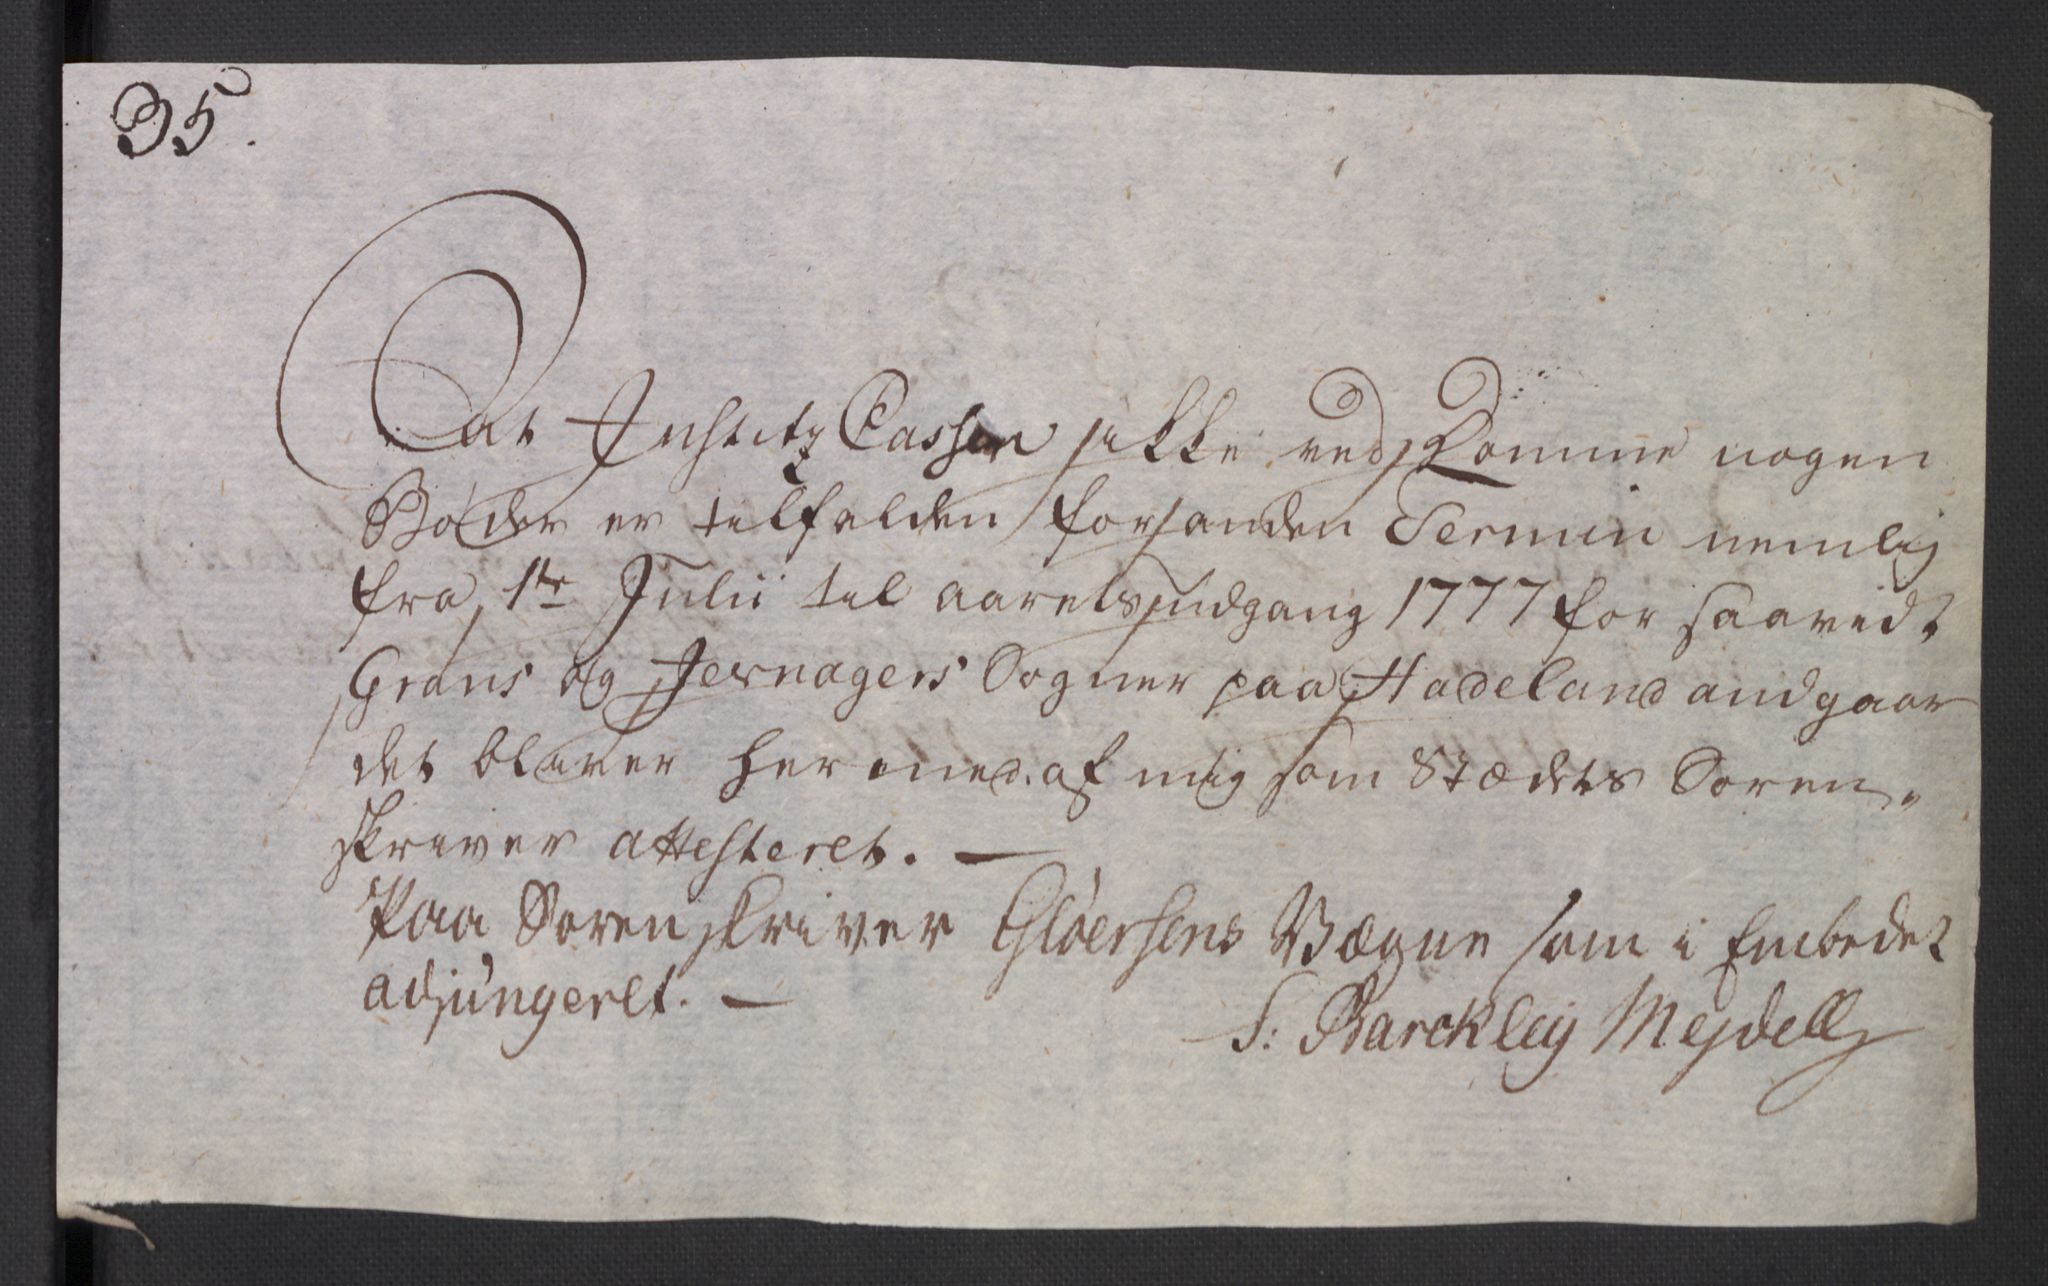 35.
At Justitz Cassen ikke ved Domme nogen
Bøder er tilfalden forsanden Termin nemlig
fra 1te Julii til aarets udgang 1777 for saavidt
Grans og Jevnagers Sogner paa Hadeland andgaar
det bliver hermed af mig som Stædets Soren-
skriver attesteret. —
Paa Sorenskriver Gløersens Vægne som i Embedet
adjungeret. —
S: Barckleij Mejdell